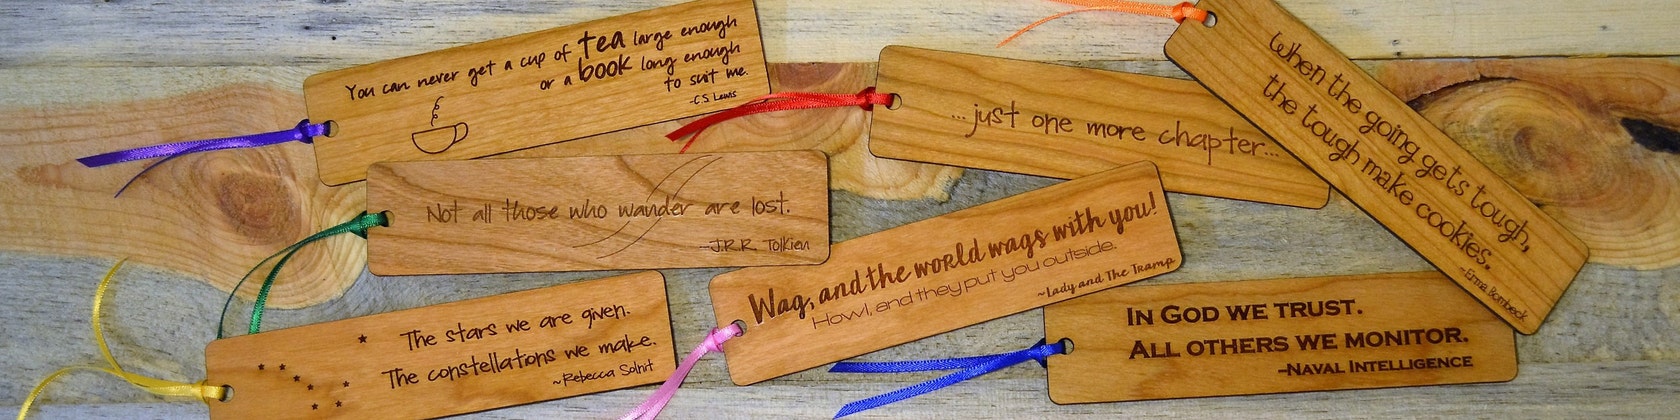 You can never get a cup of tea large enough
or a book long enough
to suit me.
-C.S. Lewis
...just one more chapter...
When the going gets tough,
the tough make cookies.
~Erma Bombeck
Not all those who wander are lost.
~J.R.R. Tolkien
Wag, and the world wags with you!
Howl, and they put you outside.
~Lady and The Tramp
The stars we are given.
The constellations we make.
~Rebecca Solnit
IN GOD WE TRUST.
ALL OTHERS WE MONITOR.
–NAVAL INTELLIGENCE